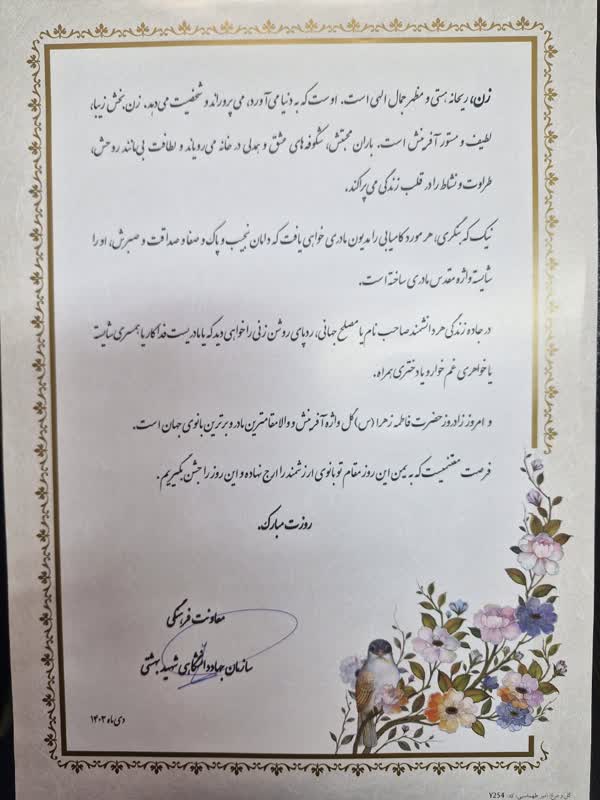 زن، ریحانه هستی و مظهر جمال الهی است. اوست که به دنیا می‌آورد، می‌پروراند و شخصیت می‌دهد. زن بخش زیبا،
لطیف و مستور آفرینش است. باران محبتش، شکوفه‌های عشق و همدلی در خانه می‌رویاند و لطافت بی‌مانند روحش،
طراوت و نشاط را در قلب زندگی می‌پراکند.
نیک که بنگری، هر مورد کامیابی را مدیون مادری خواهی یافت که دامان نجیب و پاک و صفا و صداقت و صبرش، او را
شایسته واژه مقدس مادری ساخته است.
در جاده زندگی هر دانشمند صاحب نام یا مصلح جهانی، ردپای روشن زنی را خواهی دید که یا مادریست فداکار یا همسری شایسته
یا خواهری غم خوار و یا دختری همراه.
و امروز زادروز حضرت فاطمه زهرا (س) گل واژه آفرینش و والامقامترین مادر و برترین بانوی جهان است.
فرصت مغتنمیست که به یمن این روز مقام تو بانوی ارزشمند را ارج نهاده و این روز را جشن بگیریم.
روزت مبارک.
معاونت فرهنگی
سازمان جهاددانشگاهی شهید بهشتی
دی ماه ۱۴۰۲
گل و مرغ: امیر طهماسبی، کد: Y254